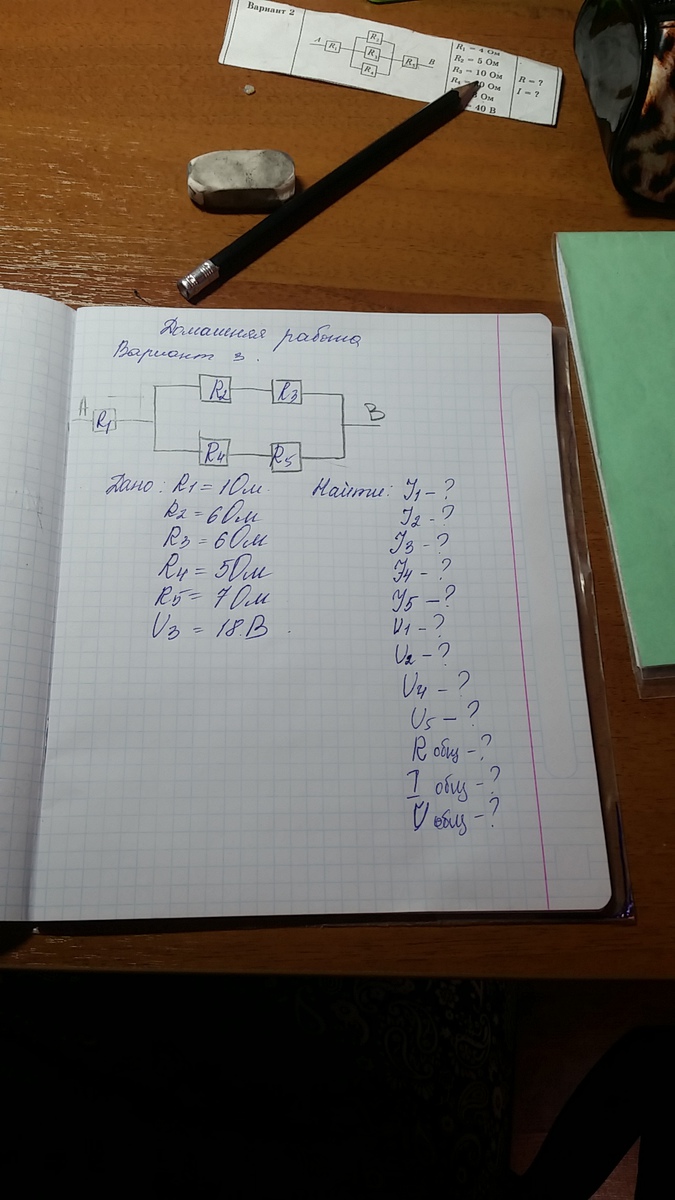 Вариант 2
A R1 R2 R3 R4 B
R₁ = 4 Ом
R₂ = 5 Ом
R₃ = 10 Ом
Ом
Ом
= 40 В
R = ?
I = ?
Домашняя работа
Вариант 3.
A R1 R2 R3 R4 R5 B
Дано: R1 = 1Ом.
R2 = 6Ом
R3 = 6Ом
R4 = 5Ом
R5 = 7Ом
U3 = 18.В.
Найти: I1 - ?
I2 - ?
I3 - ?
I4 - ?
I5 - ?
U1 - ?
U2 - ?
U4 - ?
U5 - ?
R общ - ?
I общ - ?
U общ - ?